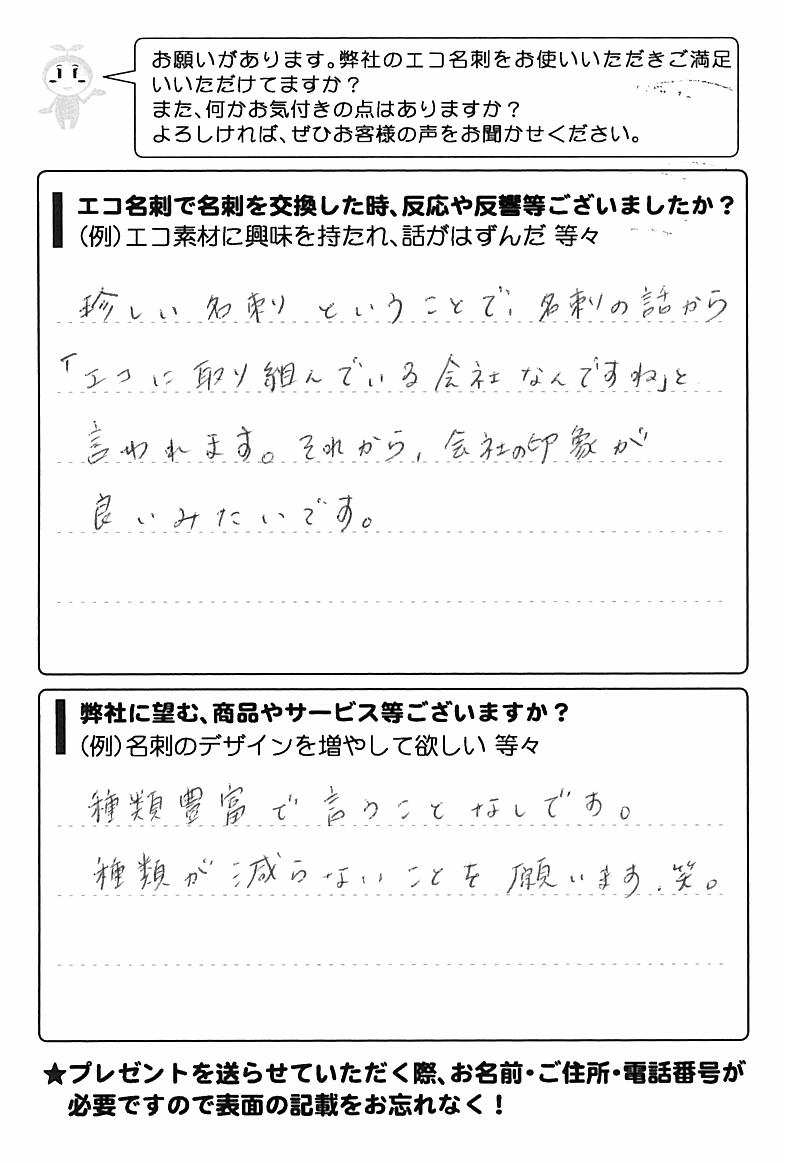 お願いがあります。弊社のエコ名刺をお使いいただきご満足
いいただけてますか？
また、何かお気付きの点はありますか？
よろしければ、ぜひお客様の声をお聞かせください。
エコ名刺で名刺を交換した時、反応や反響等ございましたか？
（例）エコ素材に興味を持たれ、話がはずんだ 等々
珍しい名刺ということで、名刺の話から
「エコに取り組んでいる会社なんですね」と
言われます。それから、会社の印象が
良いみたいです。
弊社に望む、商品やサービス等ございますか？
（例）名刺のデザインを増やして欲しい 等々
種類豊富で言うことなしです。
種類が減らないことを願います、笑。
★プレゼントを送らせていただく際、お名前・ご住所・電話番号が
必要ですので表面の記載をお忘れなく！